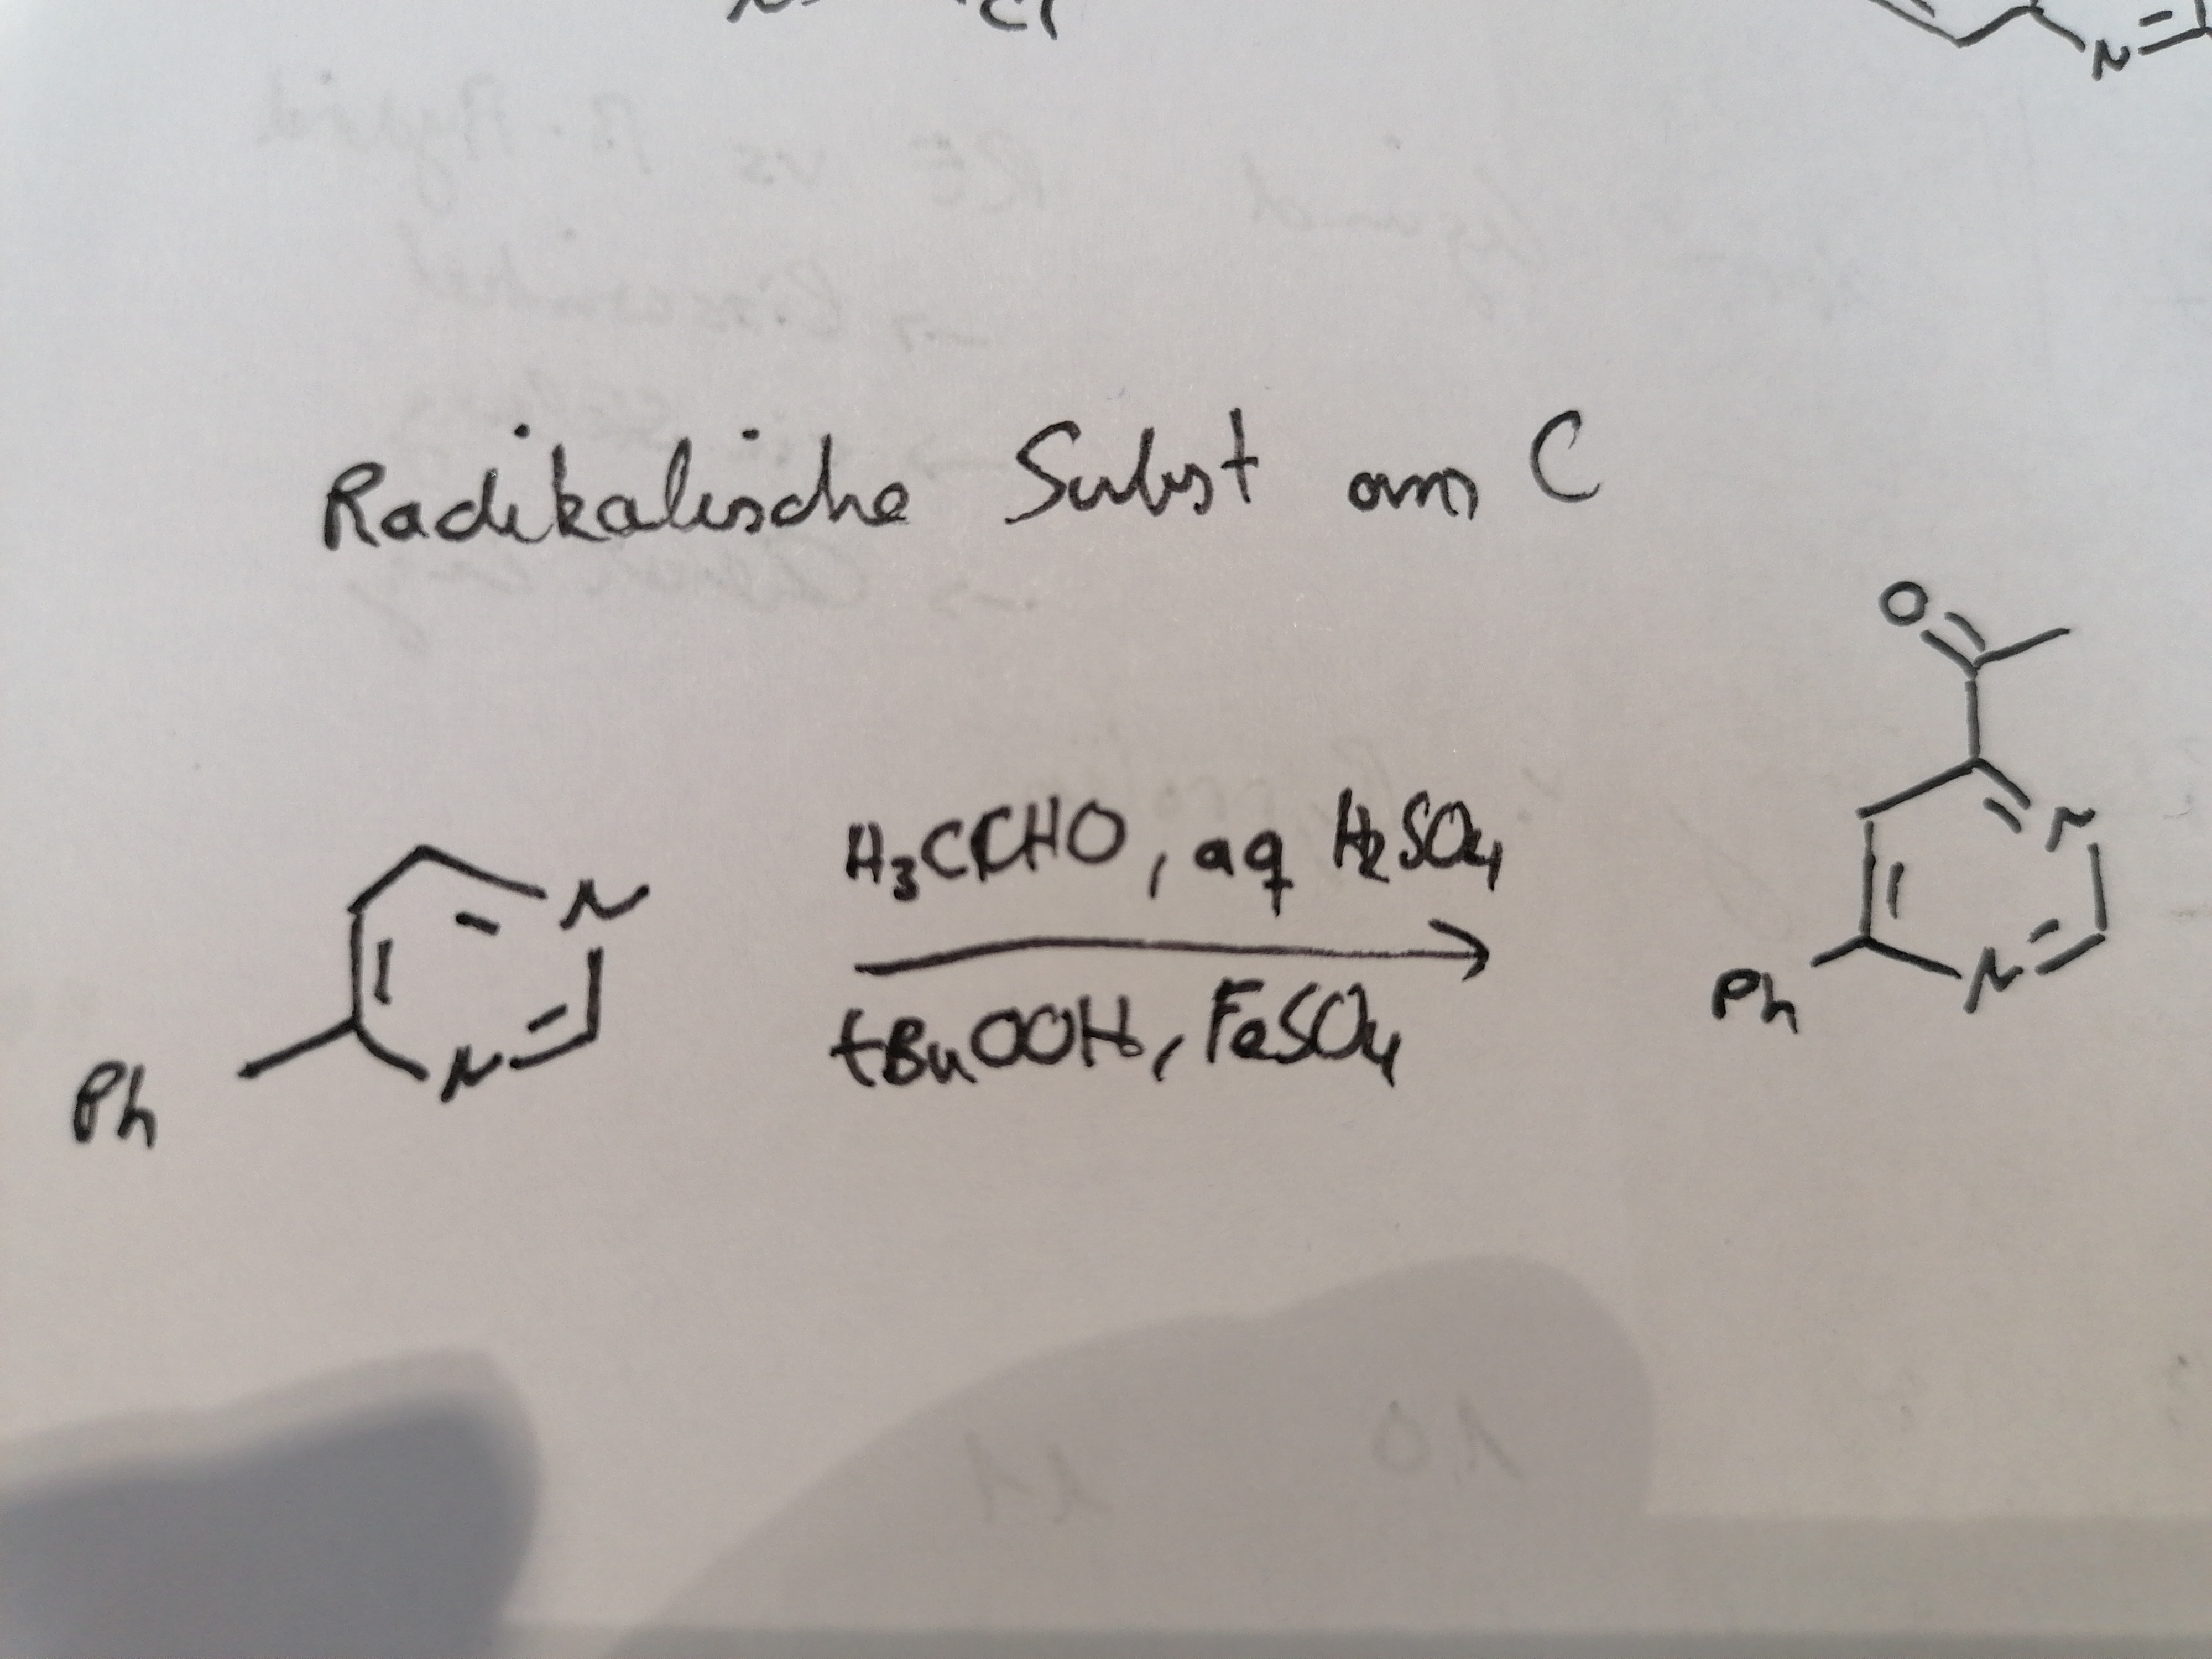 N Cl
N
Radikalische Subst am C
O
H₃CCHO, aq H₂SO₄
N N
tBuOOH, FeSO₄
Ph N Ph N